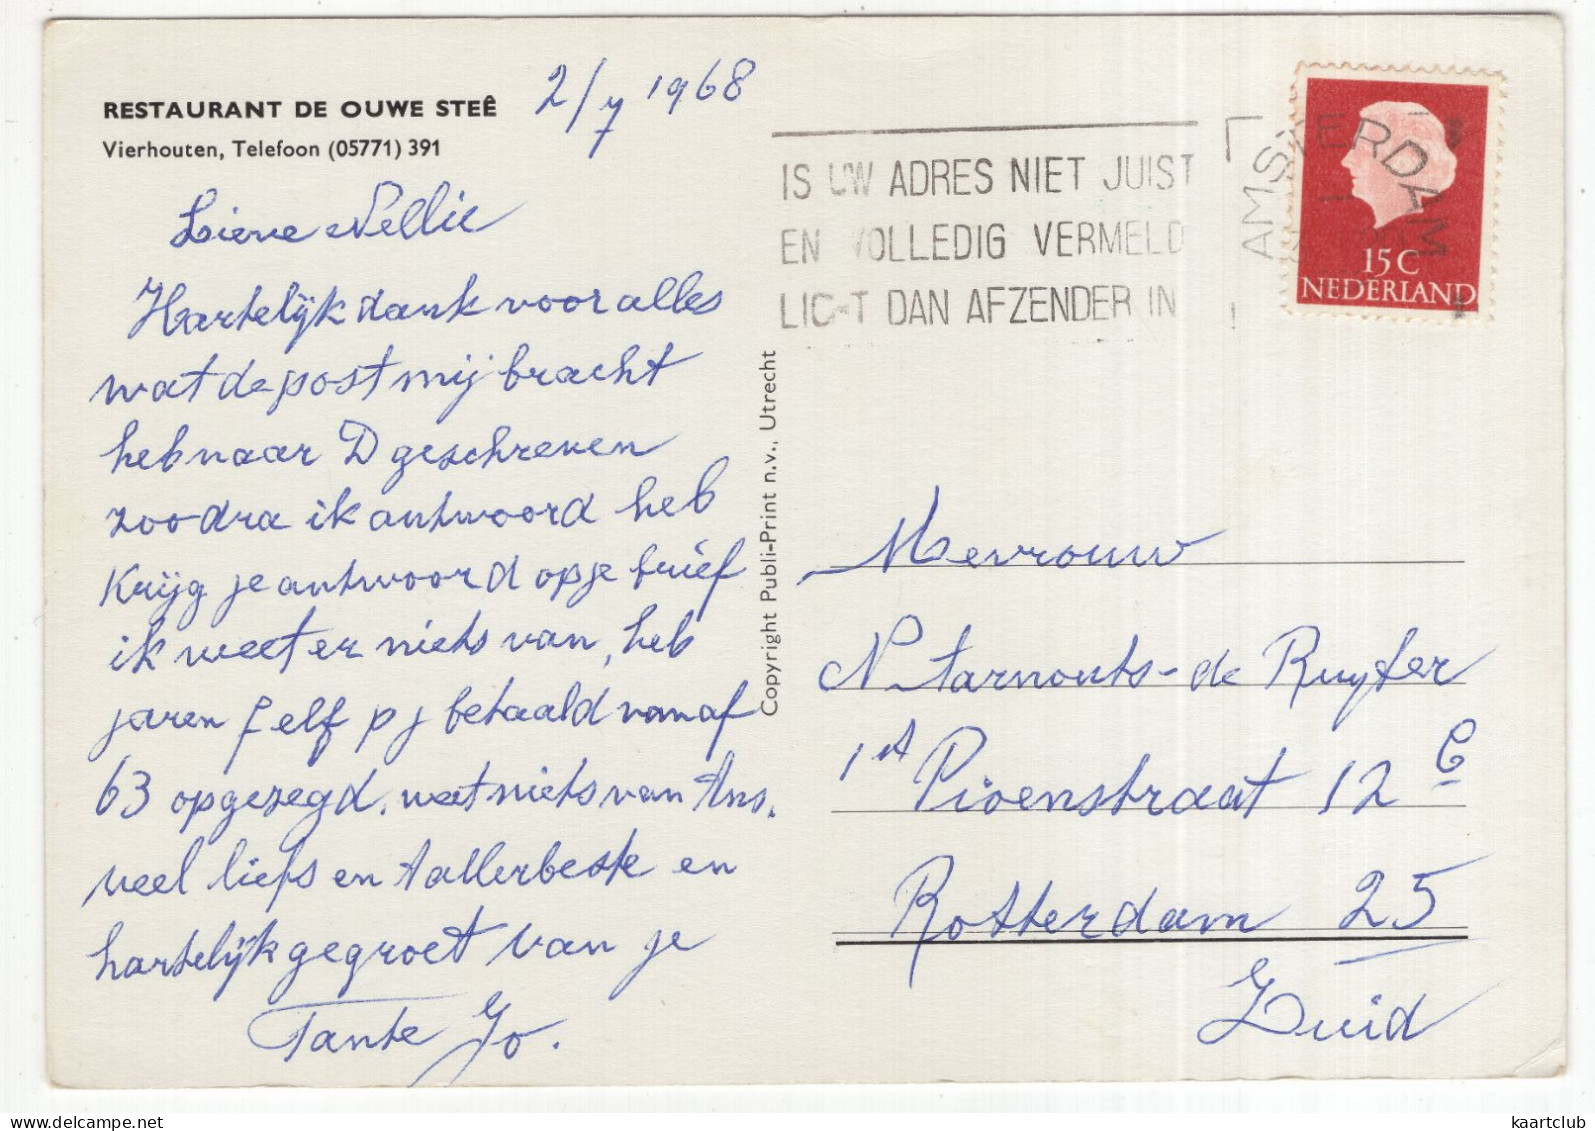 RESTAURANT DE OUWE STEÊ
Vierhouten, Telefoon (05771) 391
2/7 1968
Lieve Nellie
Hartelijk dank voor alles
wat de post mij bracht
heb naar D geschreven
zoodra ik antwoord heb
Krijg je antwoord op je brief
ik weet er niets van, heb
jaren f elf p j betaald vanaf
63 opgezegd. weet niets van Ans.
veel liefs en t allerbeste en
hartelijk gegroet van je
Tante Jo.
Copyright Publi-Print n.v., Utrecht
IS UW ADRES NIET JUIST
EN VOLLEDIG VERMELD
LICHT DAN AFZENDER IN
AMSTERDAM
15 C
NEDERLAND
Mevrouw
N Tarnouts-de Ruyter
1A Pioenstraat 12
Rotterdam 25
Zuid
kaartclub
www.delcampe.net